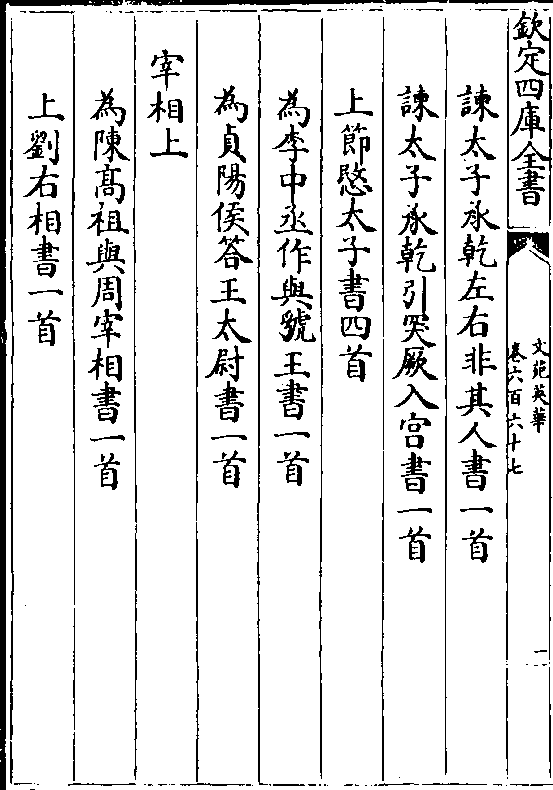 欽定四庫全書
文苑英華
卷六百六十七
一
諫太子承乾左右非其人書一首
諫太子承乾引突厥入宫書一首
上節愍太子書四首
為李中丞作與虢王書一首
為貞陽侯答王太尉書一首
宰相上
為陳髙祖與周宰相書一首
上劉右相書一首